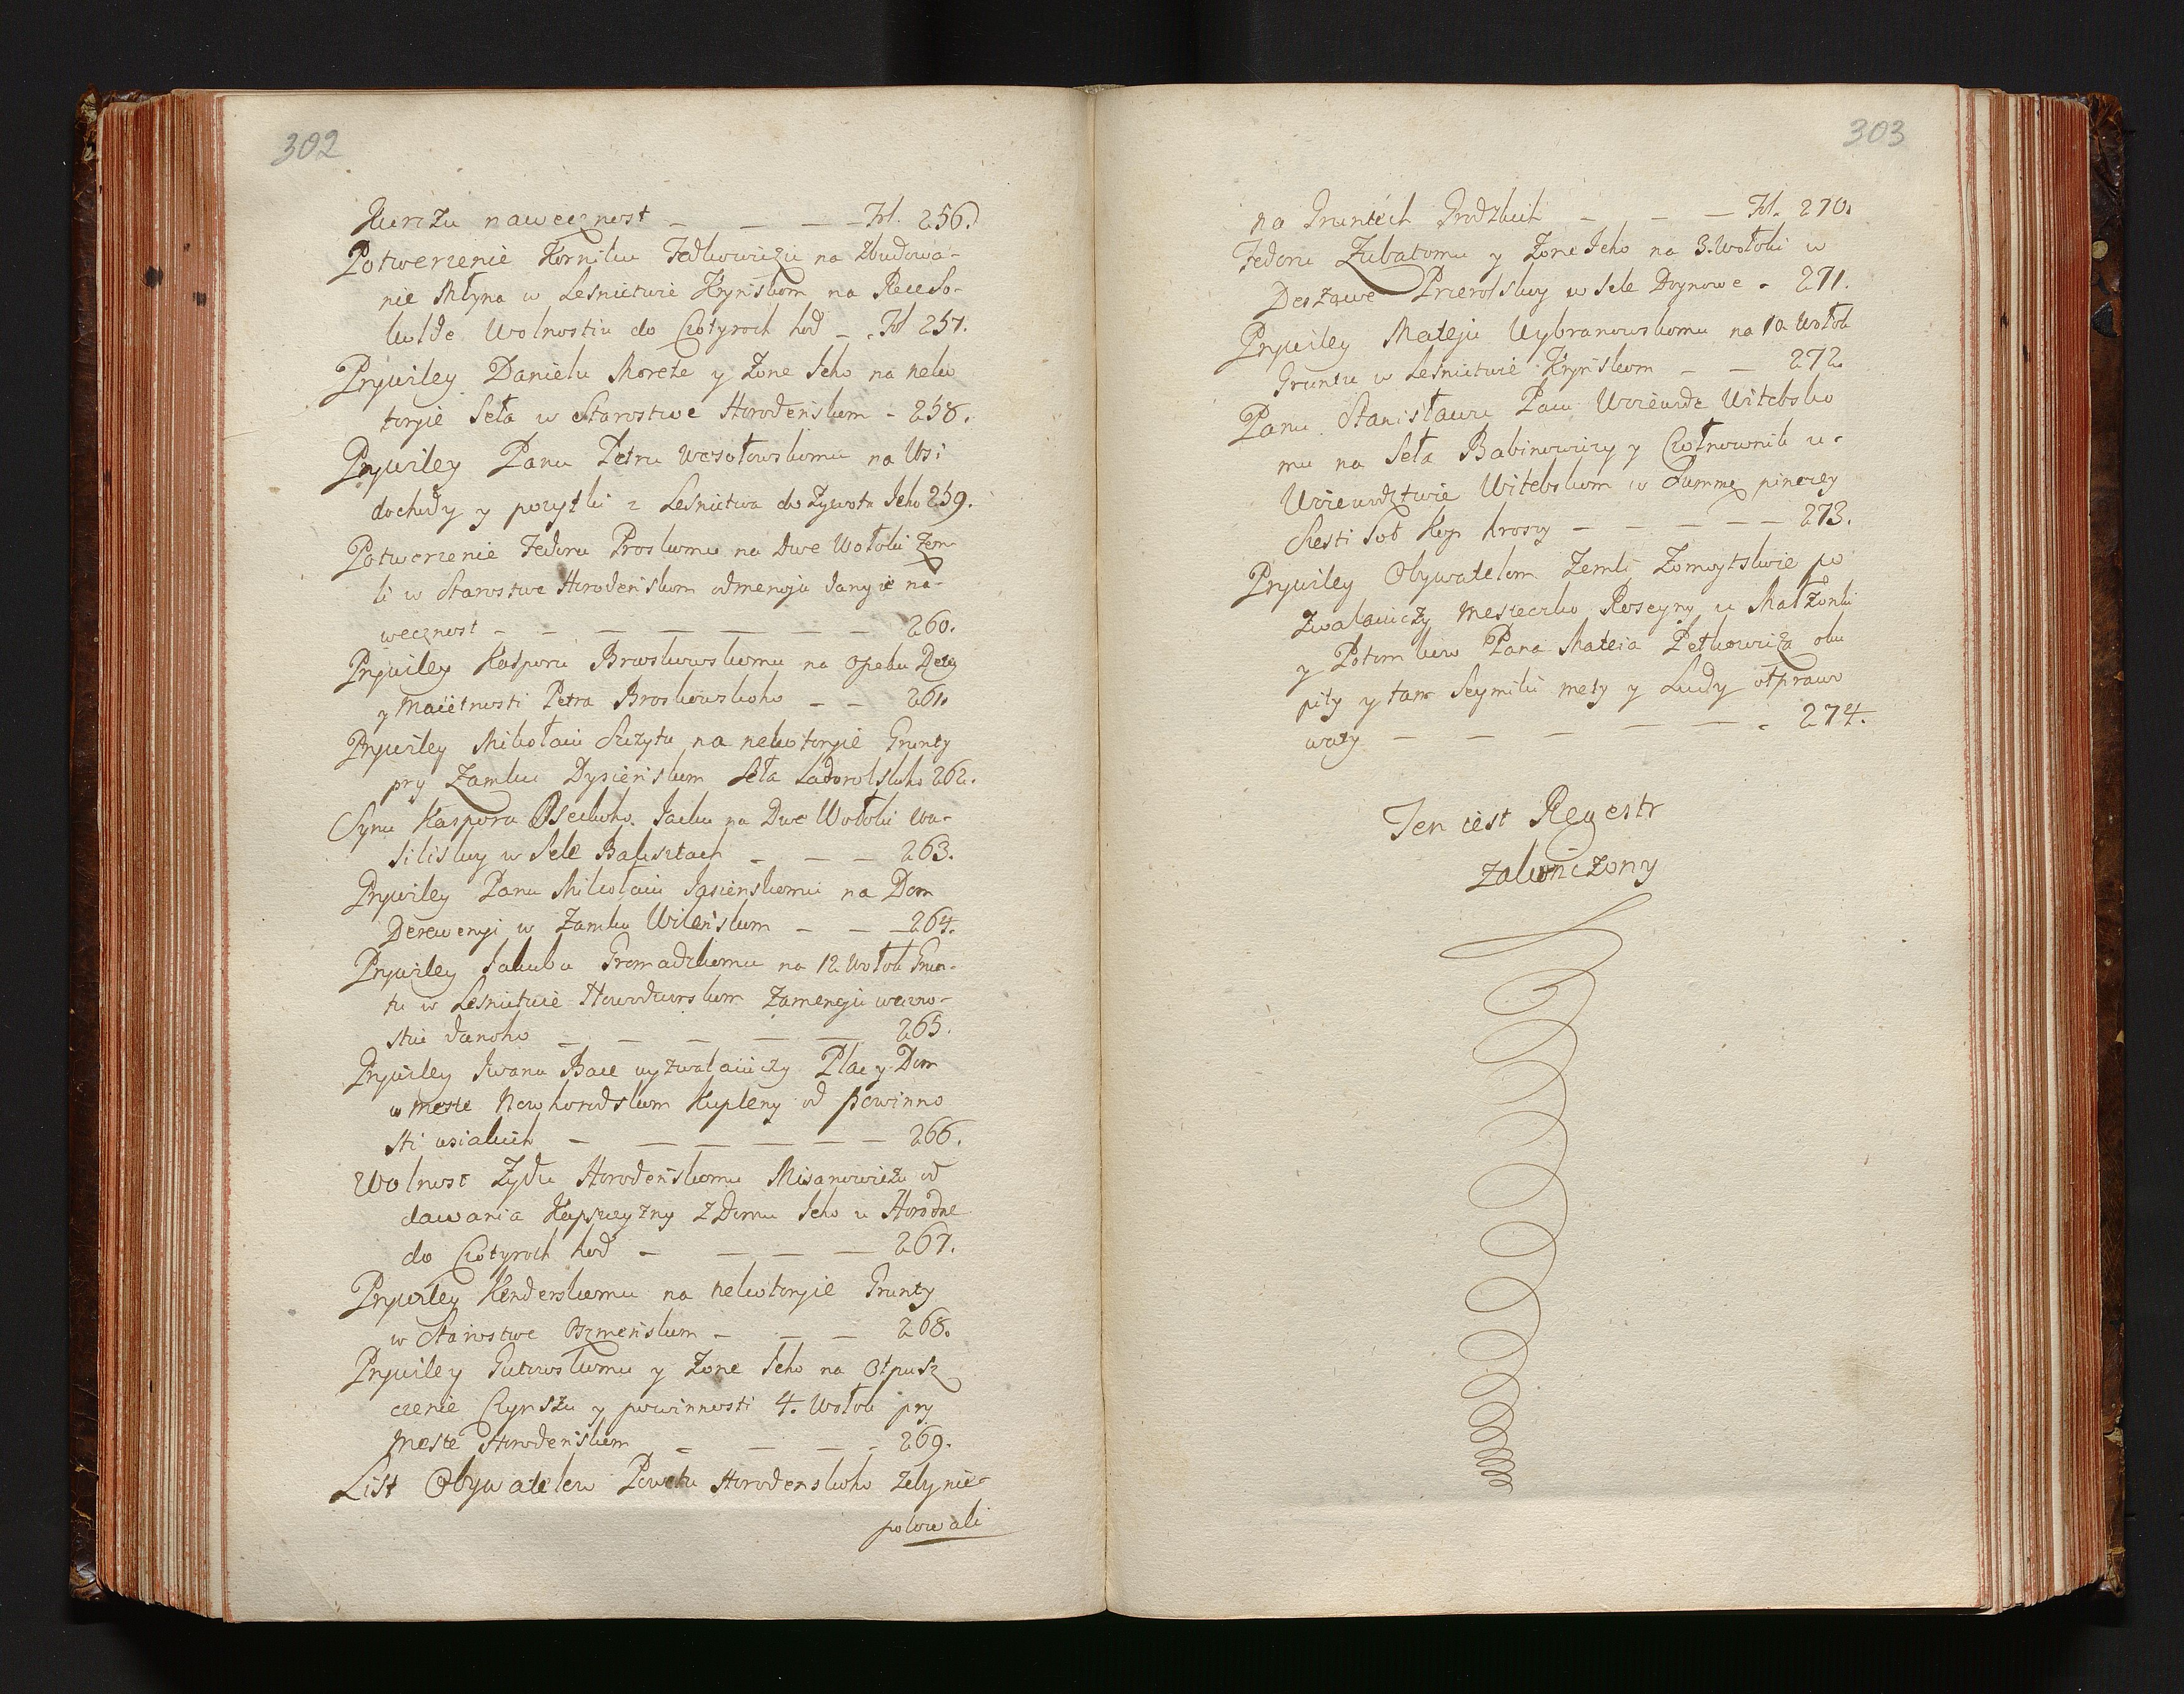 302
Jurżu naweczność — — — — Fol. 256.
Potwerżenie Kornilu Fedkowiczu na Zbudowa-
nie Młyna w Lesnictwie Krynskom na Rece So-
kołde Wolnostiu do Czotyroch hod — Fol 257.
Prywiley Danielu Moreże y Żone Jeho na neko
toryie Seła w Starostwe Horodenskom - 258.
Prywiley Panu Petru Wesołowskomu na Wsi
dochody y pożytki z Lesnictwa do Żywota Jeho 259.
Potwerżenie Fedoru Proskumu na Dwe Wołoki Zem
li w Starostwe Horodenskom odmenoju danyie na-
weczność — — — — — — — 260.
Prywiley Kasporu Broskowskomu na Opeku Detey
y Maiętnosti Petra Broskowskoho — — 261.
Prywiley Mikołaiu Szczytu na nekotoryie Grunty
pry Zamku Dysienskom Seła Sadorotskoho 262.
Synu Kaspora Osieckoho Jacku na Dwe Wołoki Wa-
siliskuy w Sele Baksztach — — — 263.
Prywiley Panu Mikołaiu Jasienskomu na Dom
Derewenyi w Zamku Wilenskom — — — 264.
Prywiley Jakubu Gromadzkomu na 12 Wołok Grun-
tu w Lesnictwie Nowodworskom Zamenoju weczno-
stiu danoho — — — — — 265.
Prywiley Iwanu Bace wyzwalaiuczy Plac y Dom
w meste Nowhorodskom Kupleny od powinno
sti wsiakich — — — — — — 266.
Wolnost Żydu Horodenskomu Misanowiczu od
dawania Kapszczyzny z Domu Jeho u Horodne
do Czotyroch hod — — — — 267.
Prywiley Kenderskomu na nekotoryie Grunty
w Starostwe Oszmenskom — — — 268.
Prywiley Gutowskomu y Żone Jeho na Otpusz
czenie Czynszu y powinnosti 4. Wołok pry
meste Horodenskom — — — - 269.
List Obywatelow Powetu Horodenskoho żeby nie-
polowali
303
na Gruntech Grodzkich — — — Fol. 270.
Fedoru Zubatomu y Żone Jeho na 3. Wołoki w
Derżawe Przerolskuy w Sele Doynowe - 271.
Prywiley Mateju Wybranowskomu na 10 Wołok
Gruntu w Lesnictwie Krynskom — — 272.
Panu Stanisławu Pacu Woiewode Witebsko
mu na Seła Babinowiczy y Czołnowniki u-
Woiewodztwie Witebskom w Summe pinezey
Szesti Sot Kop hroszy — — — — — 273.
Prywiley Obywatelom Zemli Żomoytskoie po
zwalaiuczy Mesteczko Roseyny u Małżonki
y Potomkow Pana Mateia Petkowicza oku
pity y tam Seymiki mety y Sudy otprawo
waty — — — — — - 274.
Ten iest Regestr
zakończony